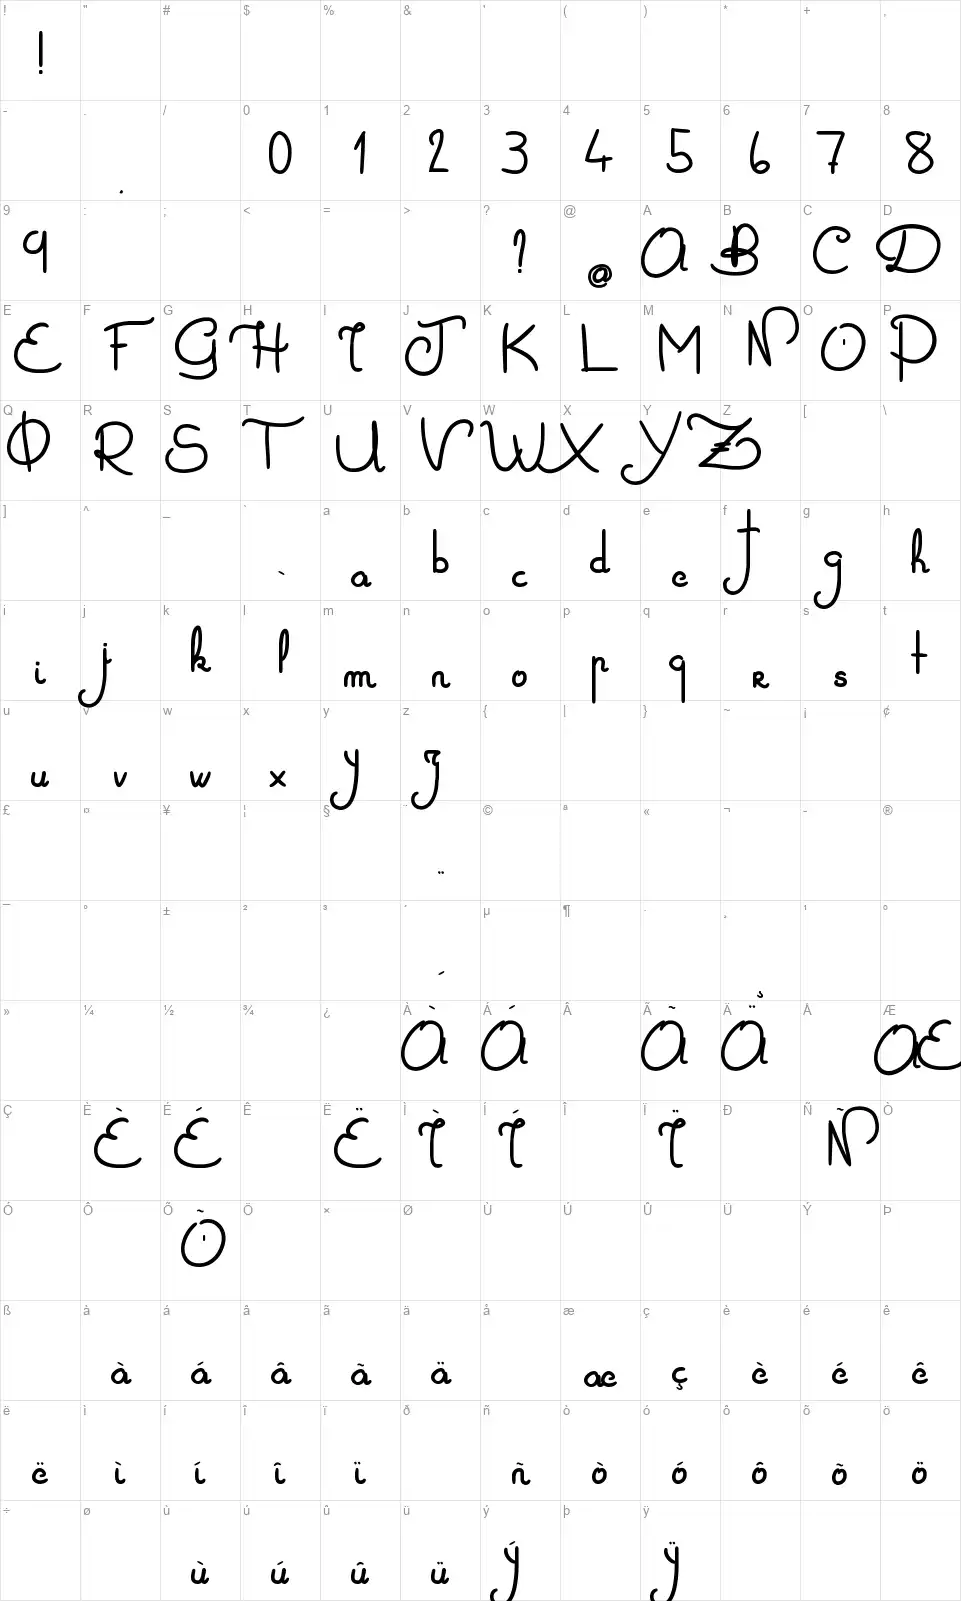 ! " # $ % & ' ( ) * + ,
!
- . / 0 1 2 3 4 5 6 7 8
. 0 1 2 3 4 5 6 7 8
9 : ; < = > ? @ A B C D
9 ? @ A B C D
E F G H I J K L M N O P
E F G H I J K L M N O P
Q R S T U V W X Y Z [ \
Q R S T U V W X Y Z
] ^ _ ` a b c d e f g h
` a b c d e f g h
i j k l m n o p q r s t
i j k l m n o p q r s t
u v w x y z { | } ~ ¡ ¢
u v w x y z
£ ¤ ¥ ¦ § ¨ © ª « ¬ - ®
¨
¯ ° ± ² ³ ´ µ ¶ · ¸ ¹ º
´ ¸
» ¼ ½ ¾ ¿ À Á Â Ã Ä Å Æ
À Á Ã Ä Æ
Ç È É Ê Ë Ì Í Î Ï Ð Ñ Ò
È É Ë Ì Í Ï Ñ
Ó Ô Õ Ö × Ø Ù Ú Û Ü Ý Þ
Õ
ß à á â ã ä å æ ç è é ê
à á â ã ä æ ç è é ê
ë ì í î ï ð ñ ò ó ô õ ö
ë ì í î ï ñ ò ó ô õ ö
÷ ø ù ú û ü ý þ ÿ
ù ú û ü ý ÿ